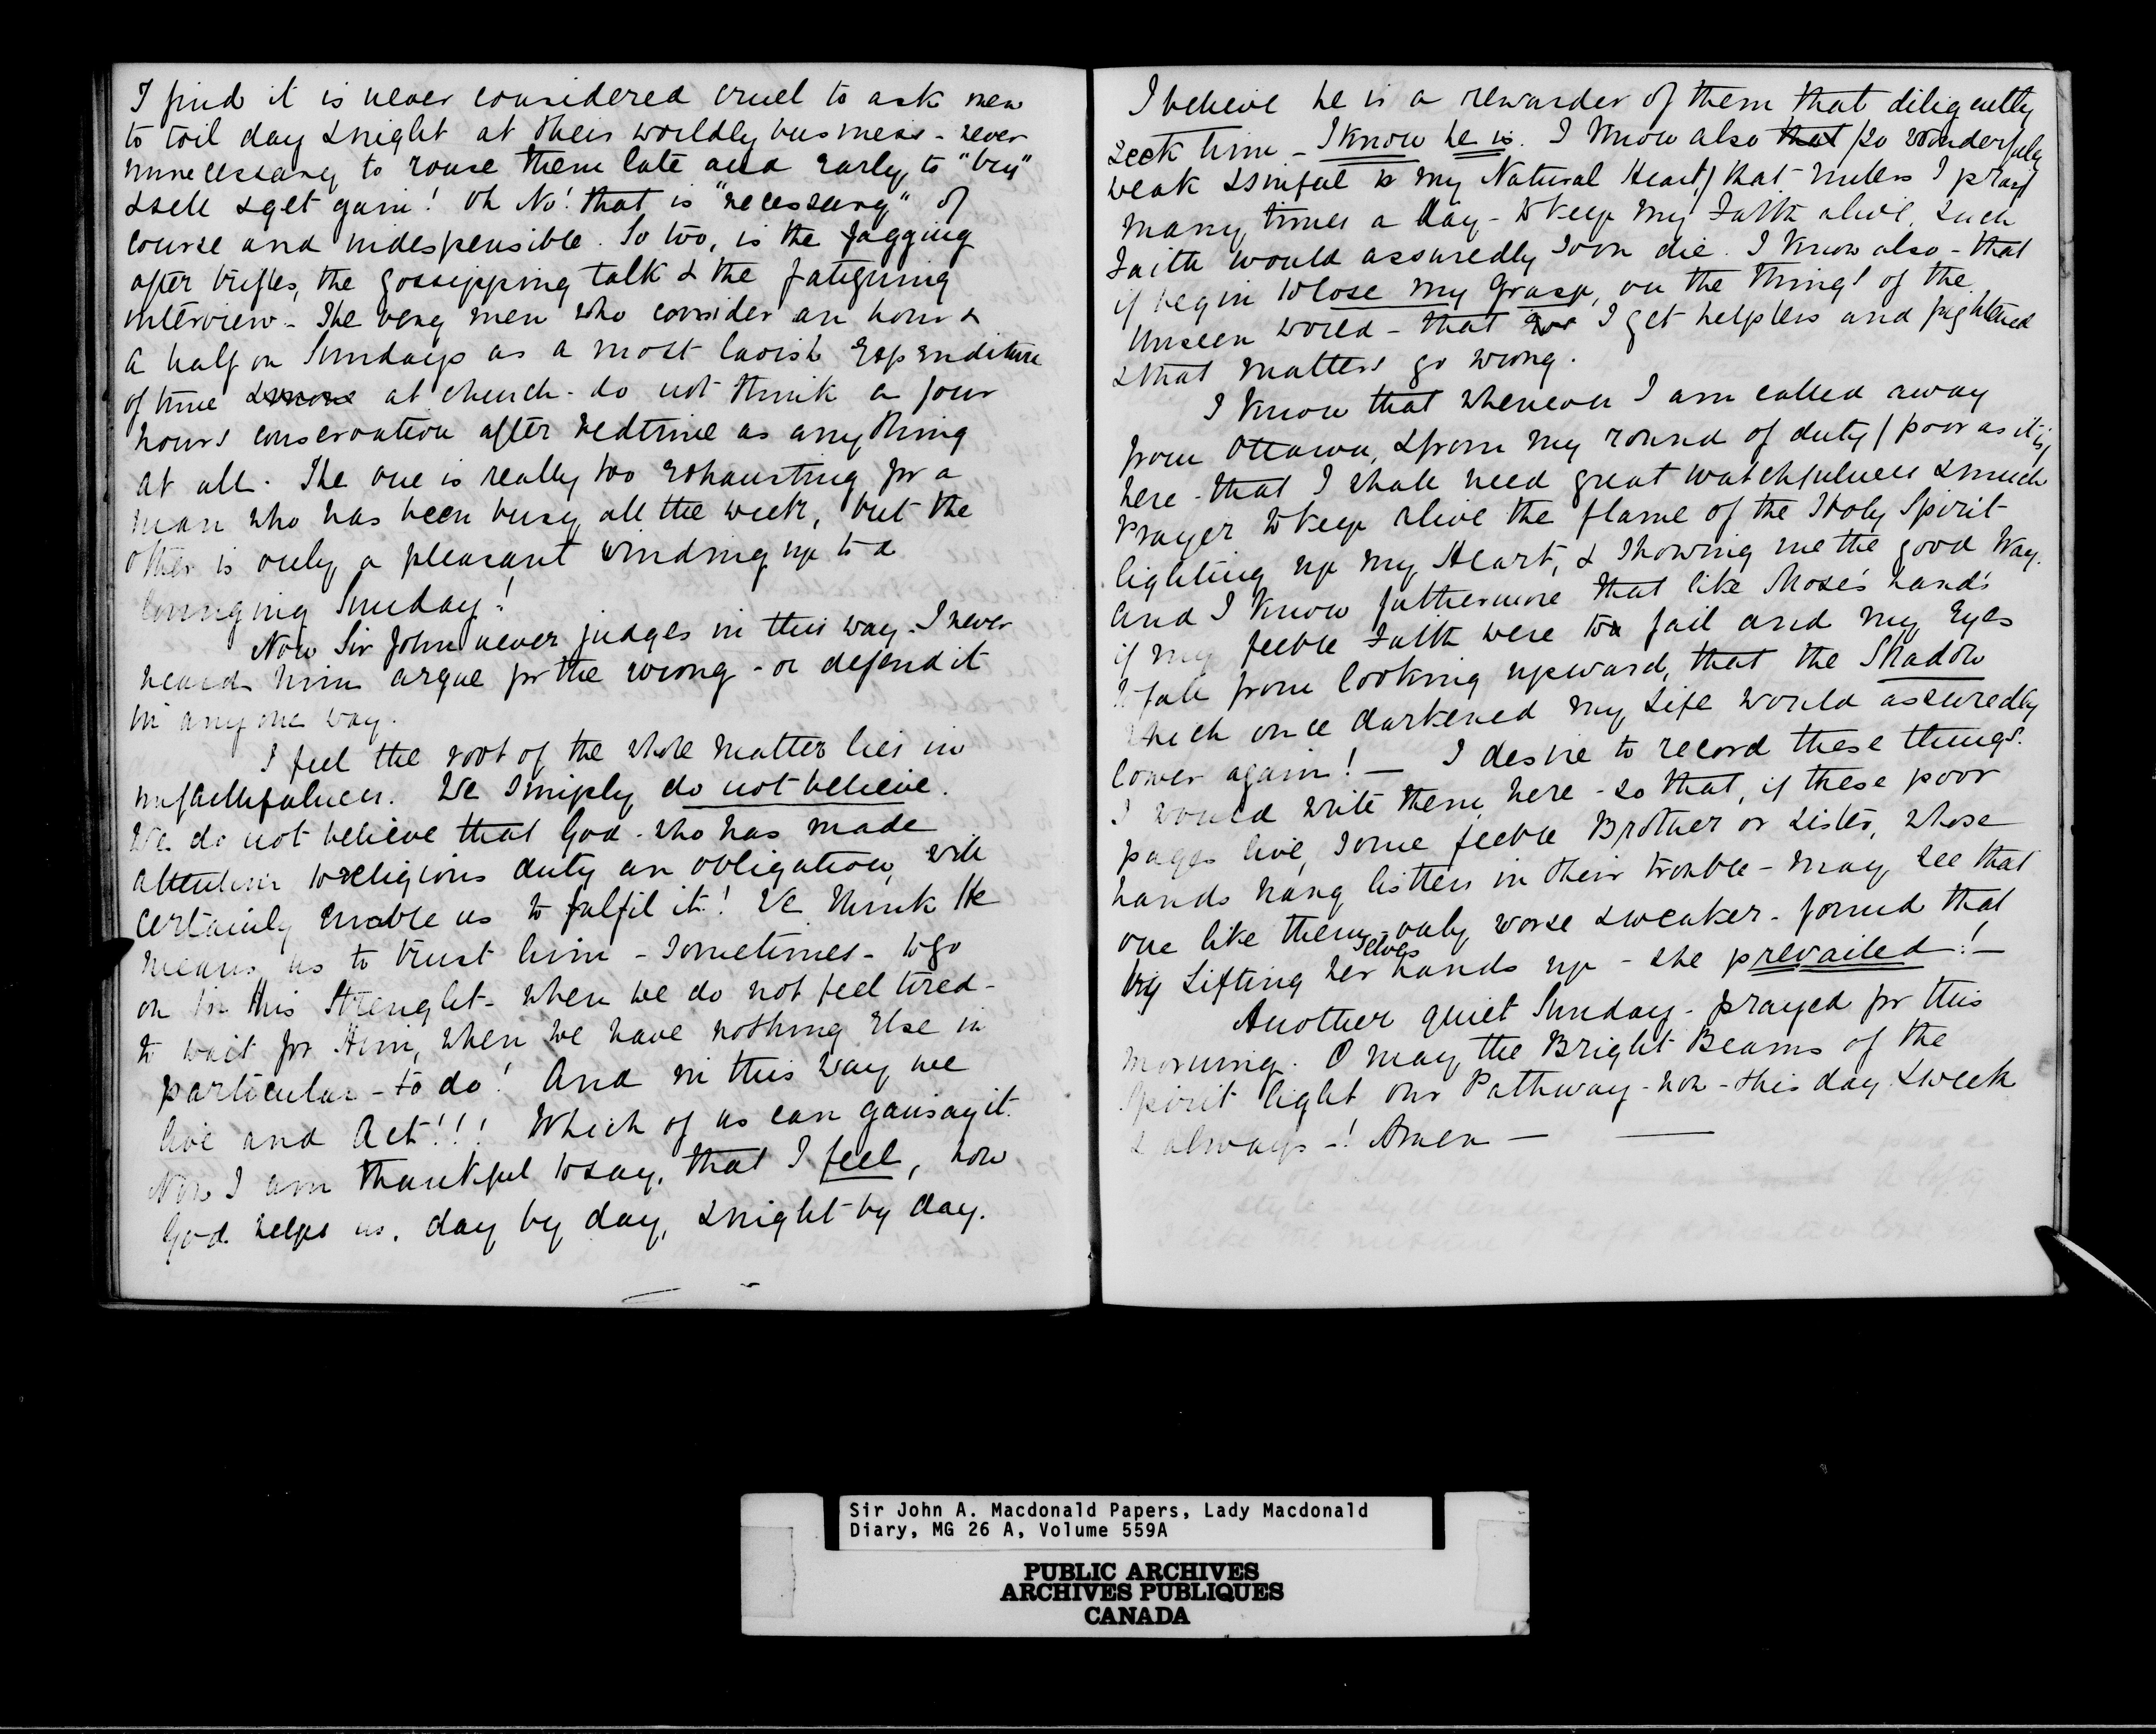 I find it is never considered cruel to ask men
to toil day & night at their worldly business - never
unnecessary to rouse them late and early, to "buy"
& sell & get gain! Oh No! that is "necessary" of
course and indespensible. So too, is the fagging
after trifles, the gossipping talk & the fatiguing
interview - The very men who consider an hour &
a half on Sundays as a most lavish expenditure
of time & more at church - do not think a four
hours conservation after bedtime as anything
at all. The one is really too exhausting for a
man who has been busy all the week, but the
other is only a pleasant winding up to a
lounging Sunday!
Now Sir John never judges in this way - I never
heard him argue for the wrong - or defend it
in any one way.
I feel the root of the whole matter lies in
unfaithfulness. We simply do not believe.
We do not believe that God - who has made
attention to religious duty an obligation, will
certainly enable us to fulfil it! We think He
means us to trust him - sometimes - to go
on in His Strenght - when we do not feel tired -
to wait for Him, when we have nothing else in
particular - to do! And in this way we
live and Act!!! Which of us can gainsay it.
Now I am thankful to say, that I feel, how
God helps us, day by day, & night by day.
I believe he is a rewarder of them that diligently
seek him - I know he is. I know also that (so wonderfuly
weak & sinful is my Natural Heart,) that unless I pray
many times a day - to keep my Faith alive, such
Faith would assuredly soon die. I know also - that
if begin to lose my grasp, on the things of the
Unseen world - that I get helpless and frightened
& that matters go wrong.
I know that whenever I am called away
from Ottawa, & from my round of duty (poor as it is,
here - that I shall need great watchfulness & much
Prayer to keep alive the flame of the Holy Spirit
lighting up my Heart, & showing me the good Way.
And I know futhermore that like Mose's hands
if my feeble Faith were to fail and my Eyes
to fall from looking upward, that the Shadow
which once darkened my Life would assuredly
lower again! — I desire to record these things.
I would write them here - so that, if these poor
pages live, some feeble Brother or Sister, whose
hands hang listless in their trouble - may see that
one like themselves - only worse & weaker - found that
by Lifting her hands up - she prevailed! —
Another quiet Sunday - prayed for this
morning. O may the Bright Beams of the
Spirit light our Pathway - now - this day & week
& always -! Amen —
Sir John A. Macdonald Papers, Lady Macdonald
Diary, MG 26 A, Volume 559A
PUBLIC ARCHIVES
ARCHIVES PUBLIQUES
CANADA